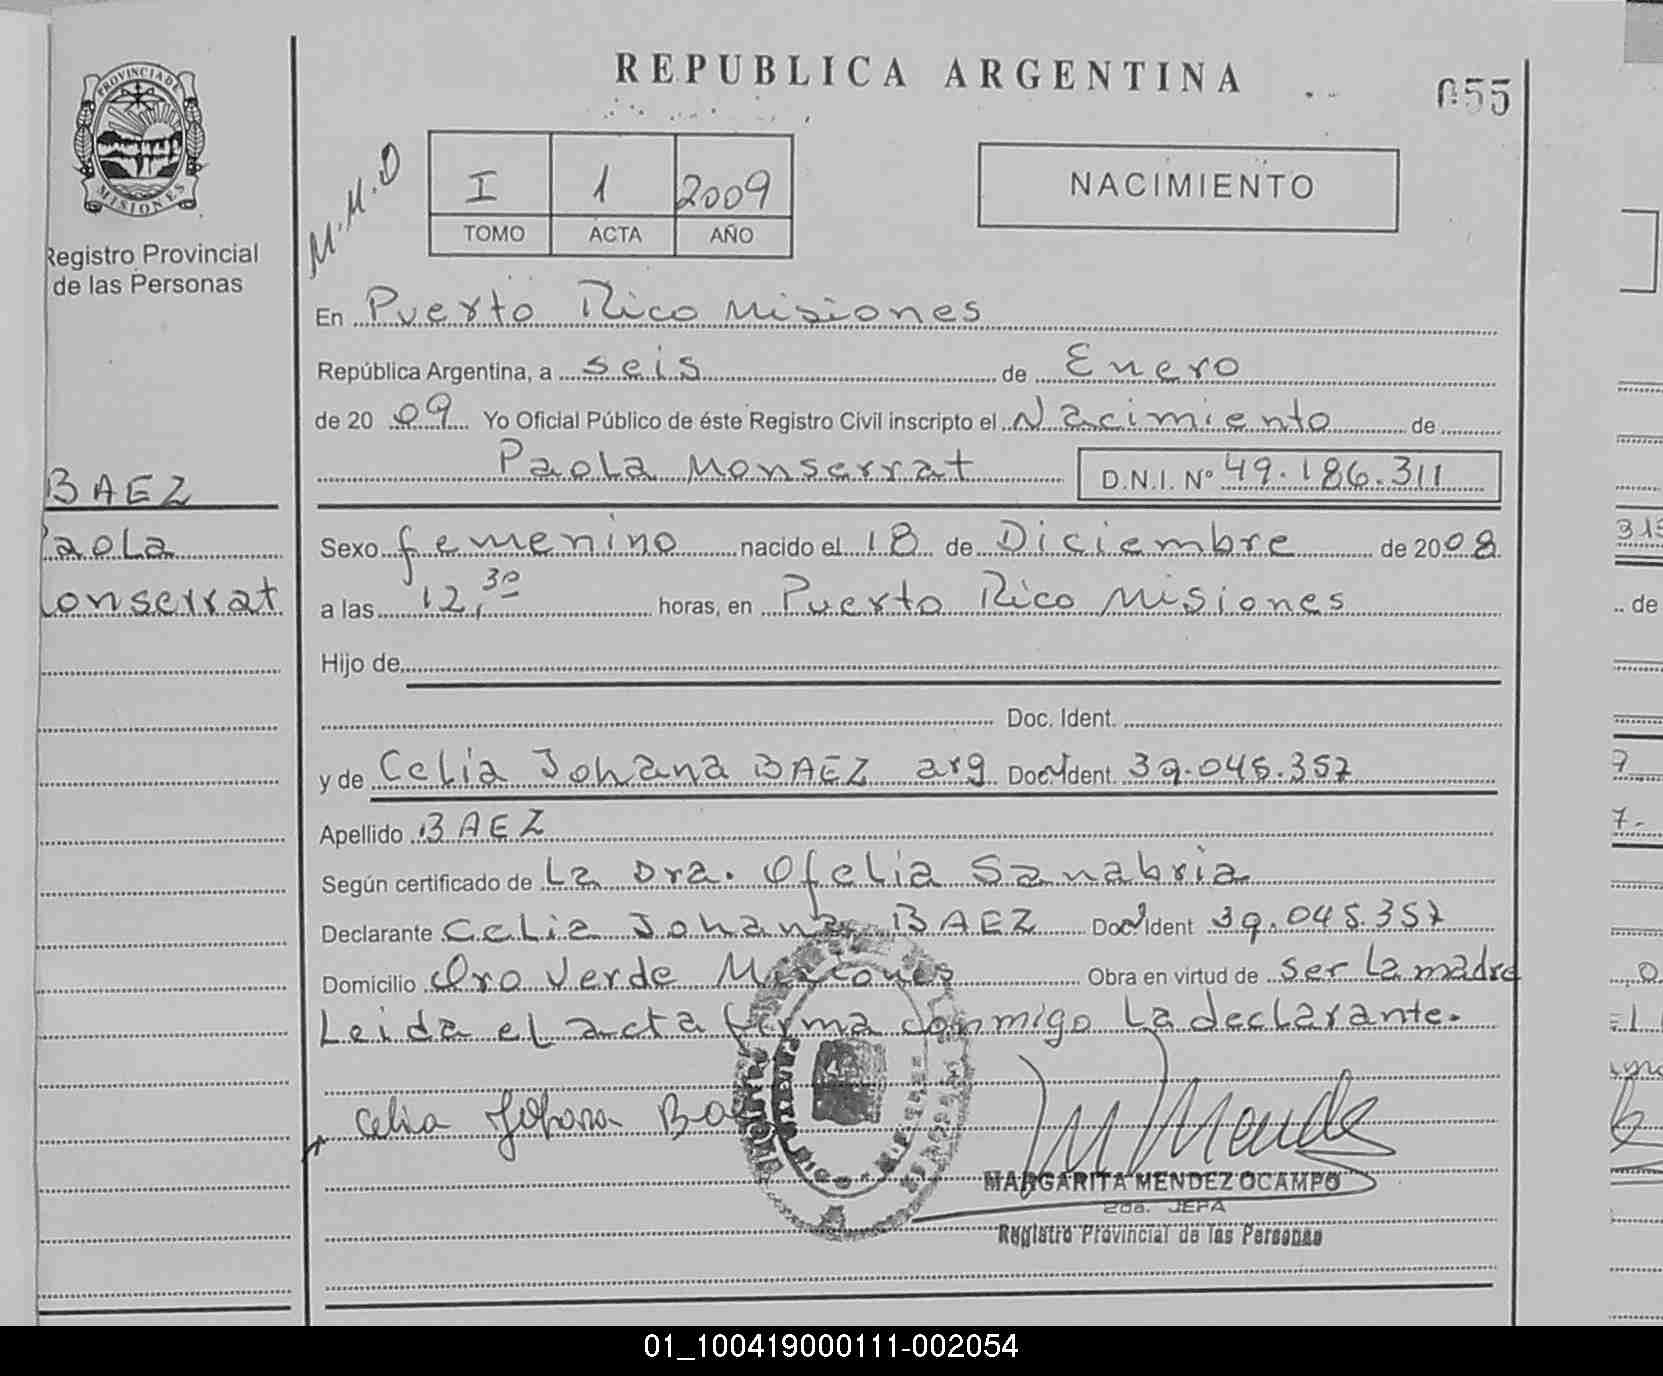 REPUBLICA ARGENTINA
055
PROVINCIA DE
MISIONES
Registro Provincial
de las Personas
M.M.D
I 1 2009
TOMO ACTA AÑO
NACIMIENTO
En Puerto Rico Misiones
República Argentina, a seis de Enero
de 2009 Yo Oficial Público de éste Registro Civil inscripto el Nacimiento de
Paola Monserrat D.N.I. Nº 49.186.311
BAEZ
aola
onserrat
Sexo femenino nacido el 18 de Diciembre de 2008
a las 12,30 horas, en Puerto Rico Misiones
Hijo de
Doc. Ident.
y de Celia Johana BAEZ arg. Doc. Ident. 39.045.357
Apellido BAEZ
Según certificado de La Dra. Ofelia Sanabria
Declarante Celia Johana BAEZ Doc. Ident 39.045.357
Domicilio Oro Verde Misiones Obra en virtud de ser La madre
Leida el acta firma conmigo La declarante.
Celia Johana Ba
MARGARITA MENDEZ OCAMPO
2da. JEFA
Registro Provincial de las Personas
01_100419000111-002054